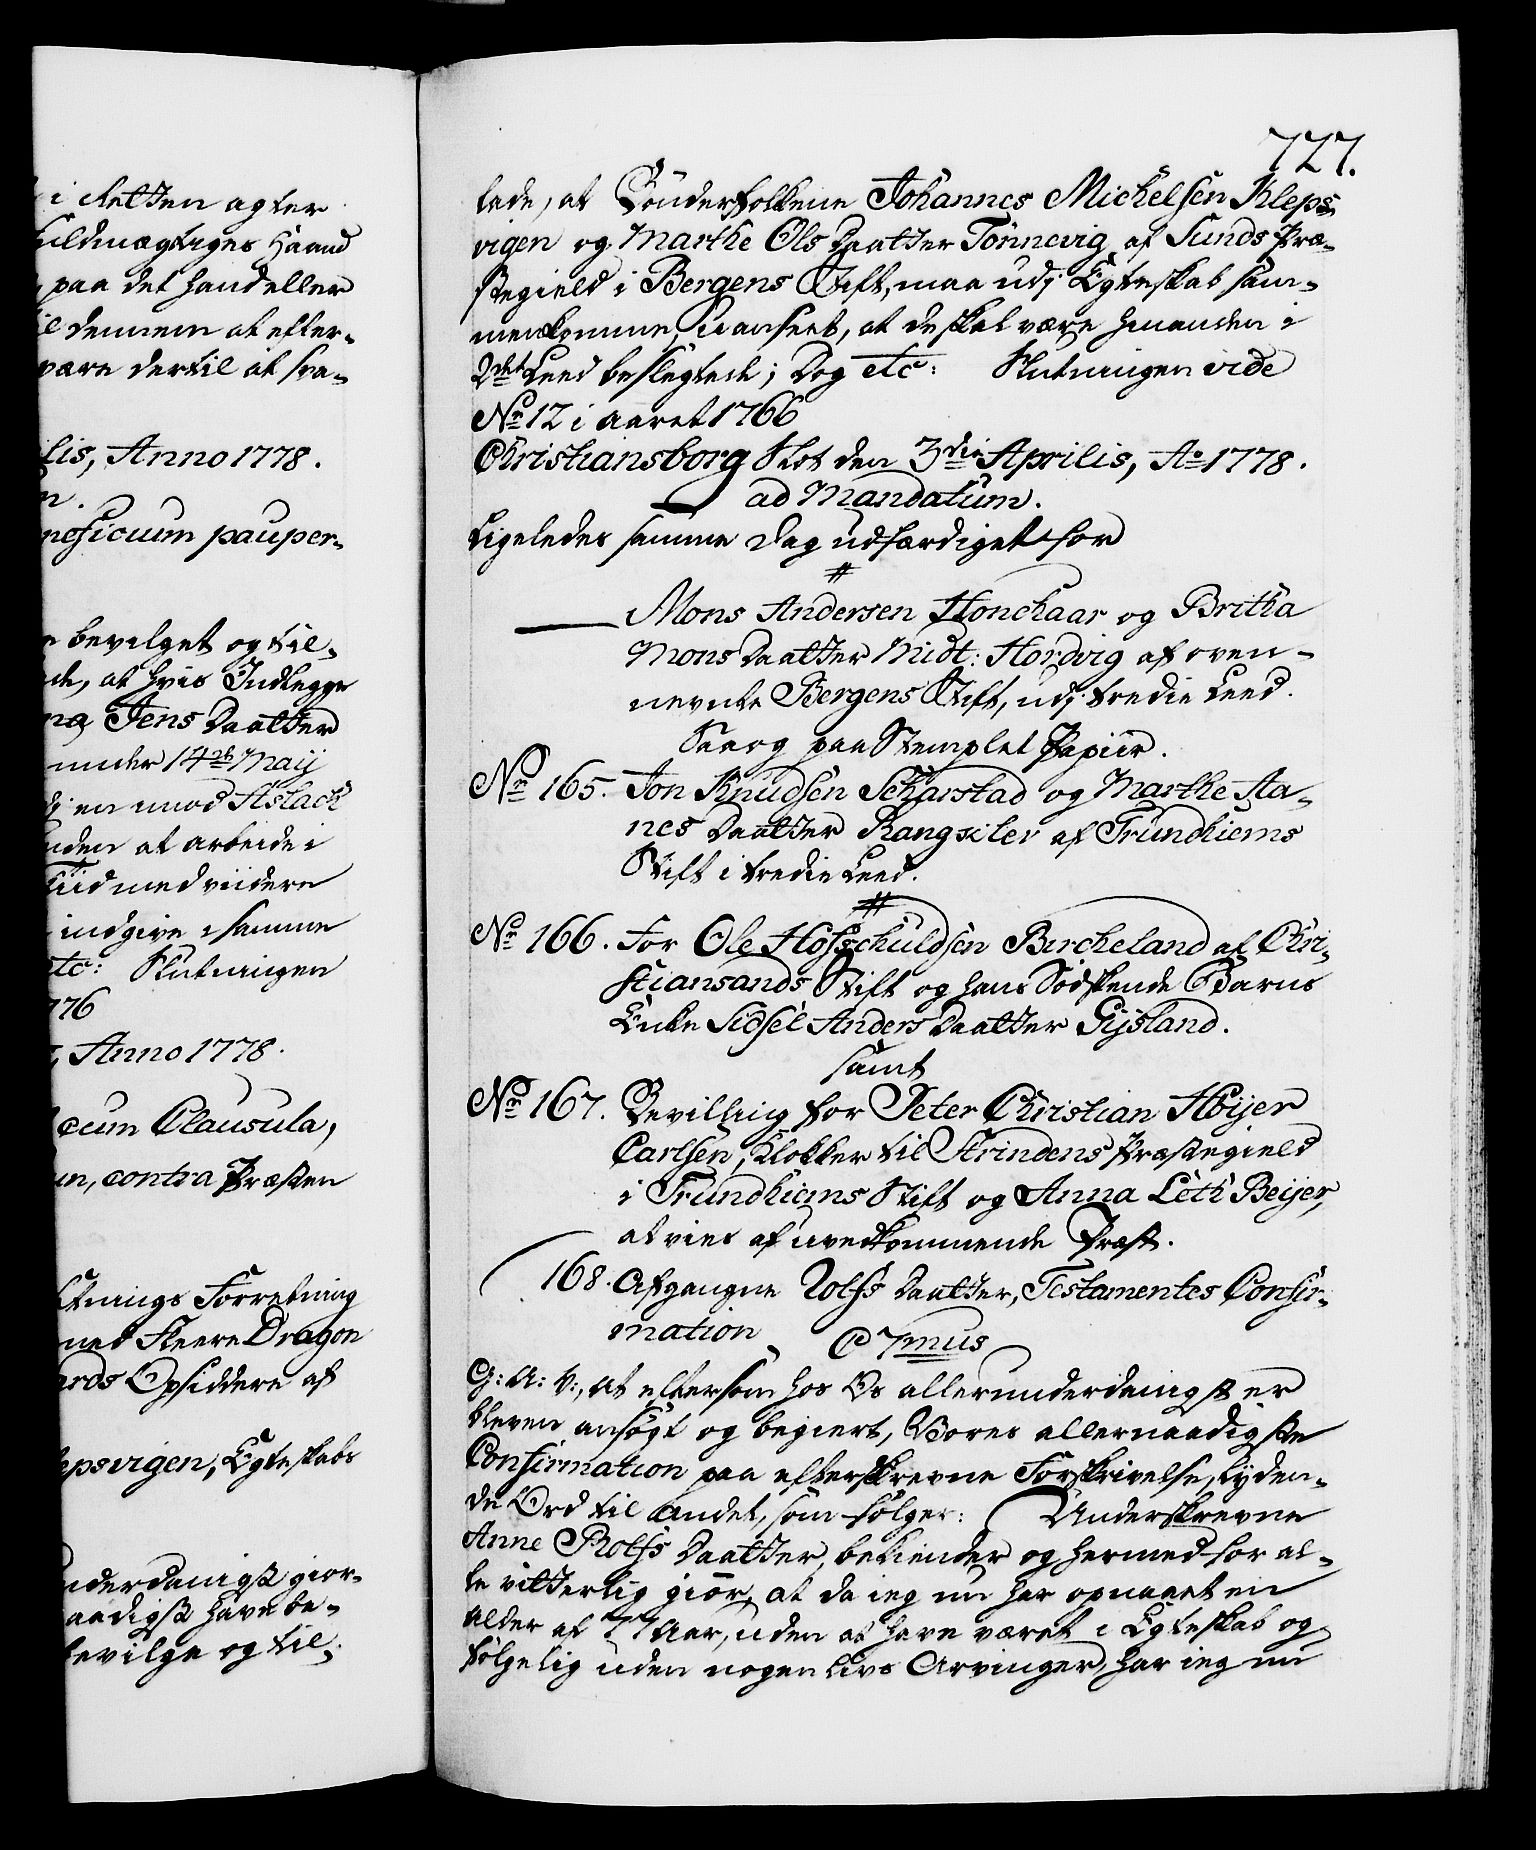 i Retten agter
uldmægtiges Haand
paa det handeller
dennem at efter-
være dertil at sva-
lis, Anno 1778.
neficium pauper-
bevilget og til-
de, at hvis Indlegge
na Jens Daatter
under 14de Maij
en mod Aslach
inden at arbeide i
Tiid med viidere
indgive i samme
etc: Slutningen
776
Anno 1778.
cum Clausula,
contra Præsten
tnings Forretning
ned Fleere Dragon
ards Opsiddere af
epsvigen, Egteskabs
nderdanigst gior-
aadigst have be-
bevilge og til-
727.
lade, at Bönderfolkene Johannes Michelsen Kleps-
vigen og Marthe Ols Daatter Tönnevig af Sunds Præ-
stegield i Bergens Stift, maa udj Egteskab sam-
menkomme, uanseet, at de skal være hinanden i
2det Leed beslegtede; Dog etc: Slutningen vide
No 12 i Aaret 1766
Christiansborg Slot den 3die Aprilis, Ao 1778.
ad Mandatum.
Ligeledes samme Dag udfærdiget for
#
Mons Andersen Honchaar og Britha
Mons Daatter Midt: Hordvig af oven-
nevnte Bergens Stift, udj tredie Leed.
paa Stemplet Papiir.
No 165. Jon Knudsen Scharstad og Marthe Aa-
nes Daatter Rangseter af Trundhiems
Stift i tredie Leed.
#
No 166. For Ole Hofschuldsen Bircheland af Chri-
stiansands Stift og hans Södskende Barns
Enke Sidsel Anders Daatter Gijsland.
samt
No 167. Bevilling for Peter Christian Höijer
Carlsen, Klokker til Strindens Præstegield
i Trundhiems Stift og Anna Leth Beijer,
at vies af uvedkommende Præst.
168. Afgangne Rolfs Daatter, Testamentes Confir-
mation C 7mus
G: A: V:, at eftersom hos Os allerunderdanigst er
bleven ansögt og begiert, Vores allernaadigste
Confirmation paa efterskrevne Forskrivelse, lyden-
de Ord til andet, som fölger: Underskrevne
Anne Rolfs Daatter, bekiender og hermed for al-
le vitterlig giör, at da ieg nu har opnaaet en
alder af 77 Aar, uden at have været i Egteskab og
fölgelig uden nogen Livs Arvinger, har ieg nu